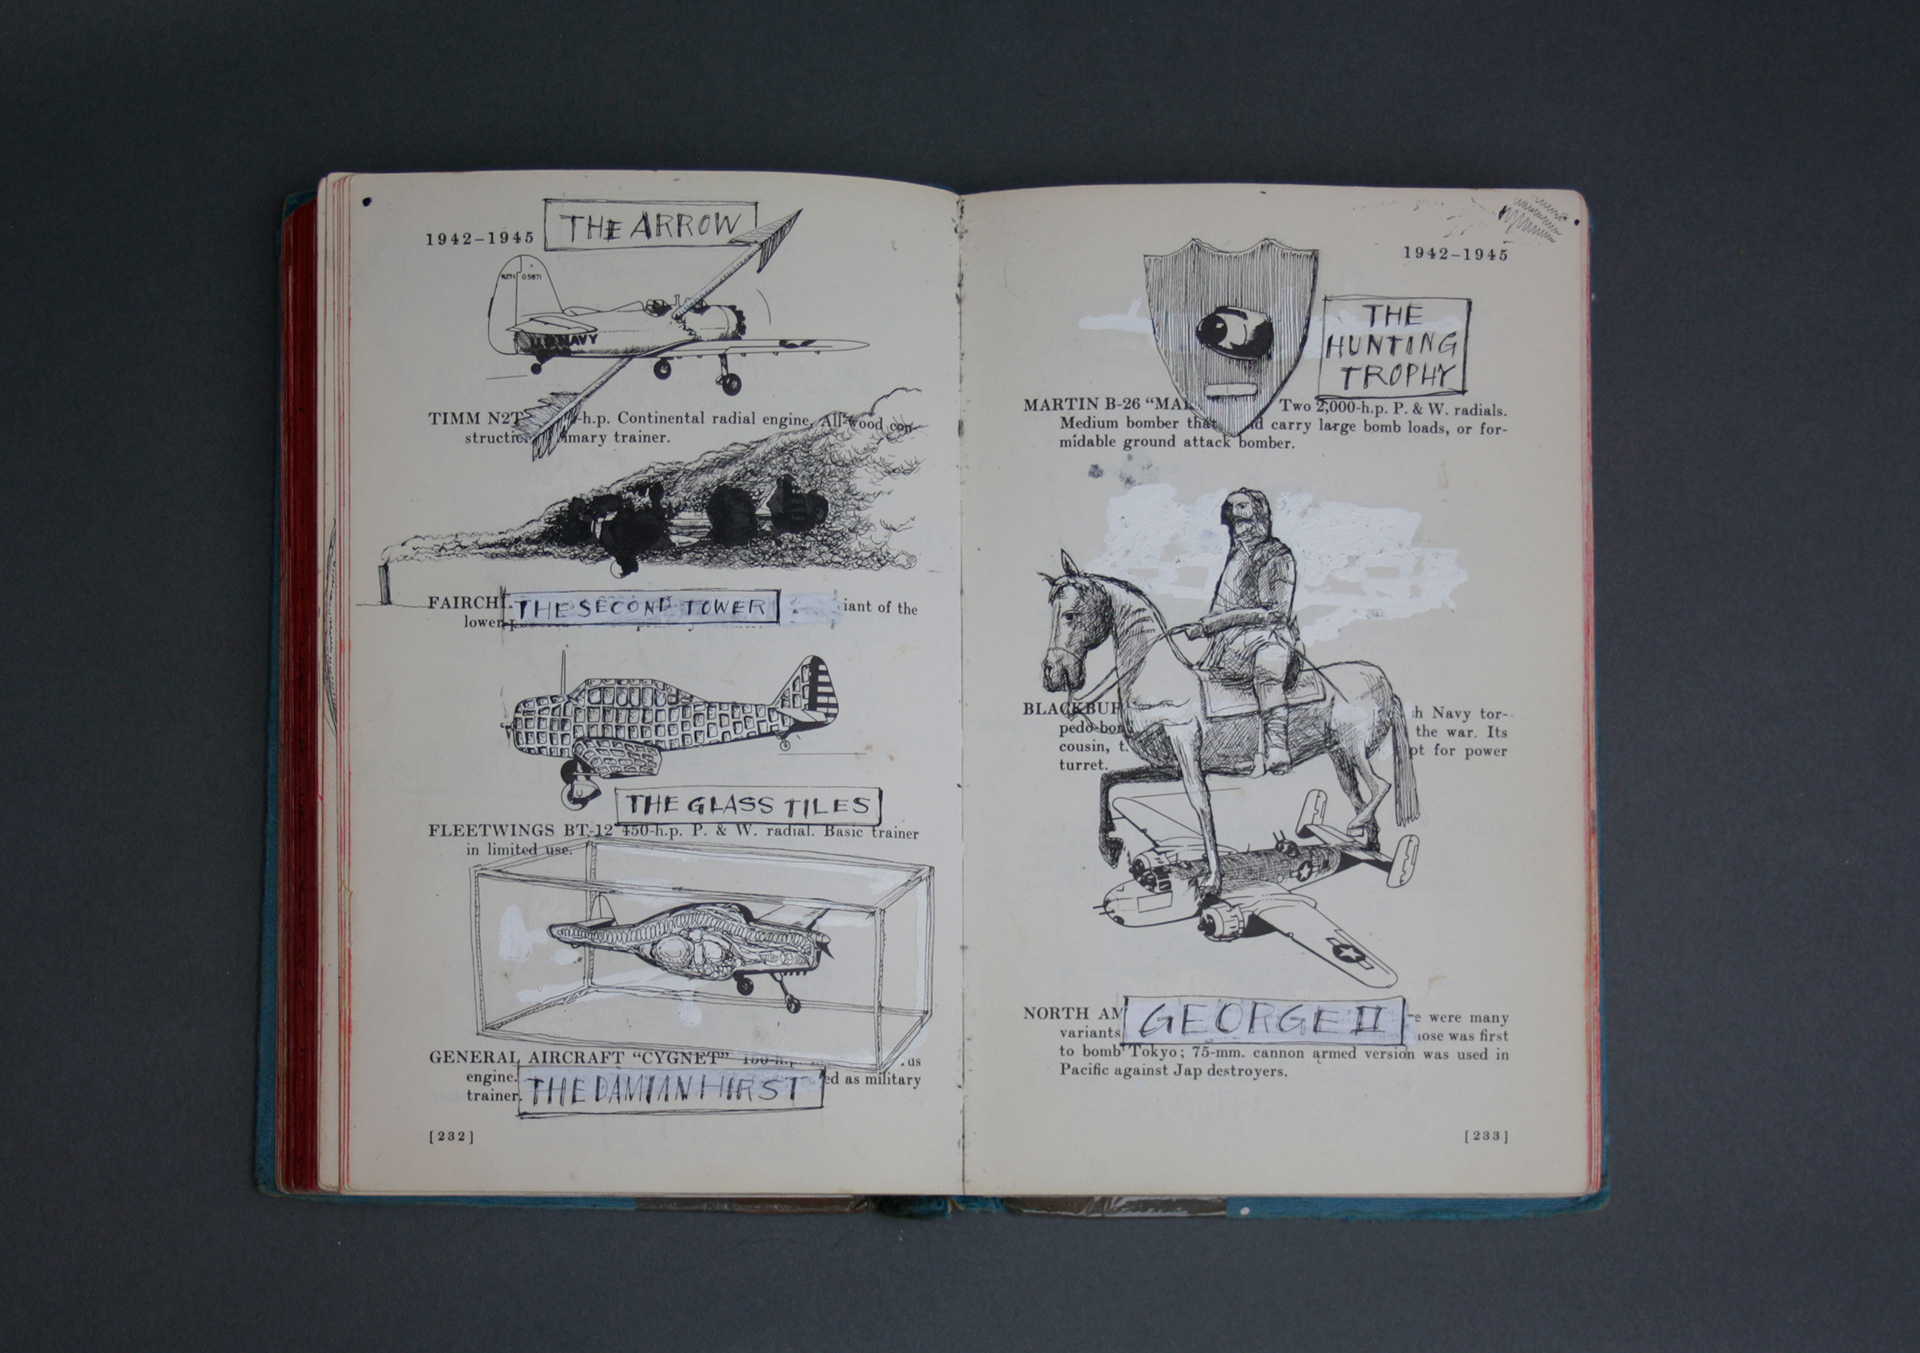 1942–1945
THE ARROW
N2T-1 05871
NAVY
TIMM N2T -h.p. Continental radial engine. All-wood con-
structio mary trainer.
FAIRCHI THE SECOND TOWER iant of the
lower
THE GLASS TILES
FLEETWINGS BT-12 450-h.p. P. & W. radial. Basic trainer
in limited use.
GENERAL AIRCRAFT “CYGNET” 150-h.p. us
engine. ed as military
trainer. THE DAMIAN HIRST
[232]
1942–1945
THE
HUNTING
TROPHY
MARTIN B-26 “MA Two 2,000-h.p. P. & W. radials.
Medium bomber that d carry large bomb loads, or for-
midable ground attack bomber.
BLACKBUR h Navy tor-
pedo-bom the war. Its
cousin, t. pt for power
turret.
NORTH AM GEORGE II e were many
variants hose was first
to bomb Tokyo; 75-mm. cannon armed version was used in
Pacific against Jap destroyers.
[233]